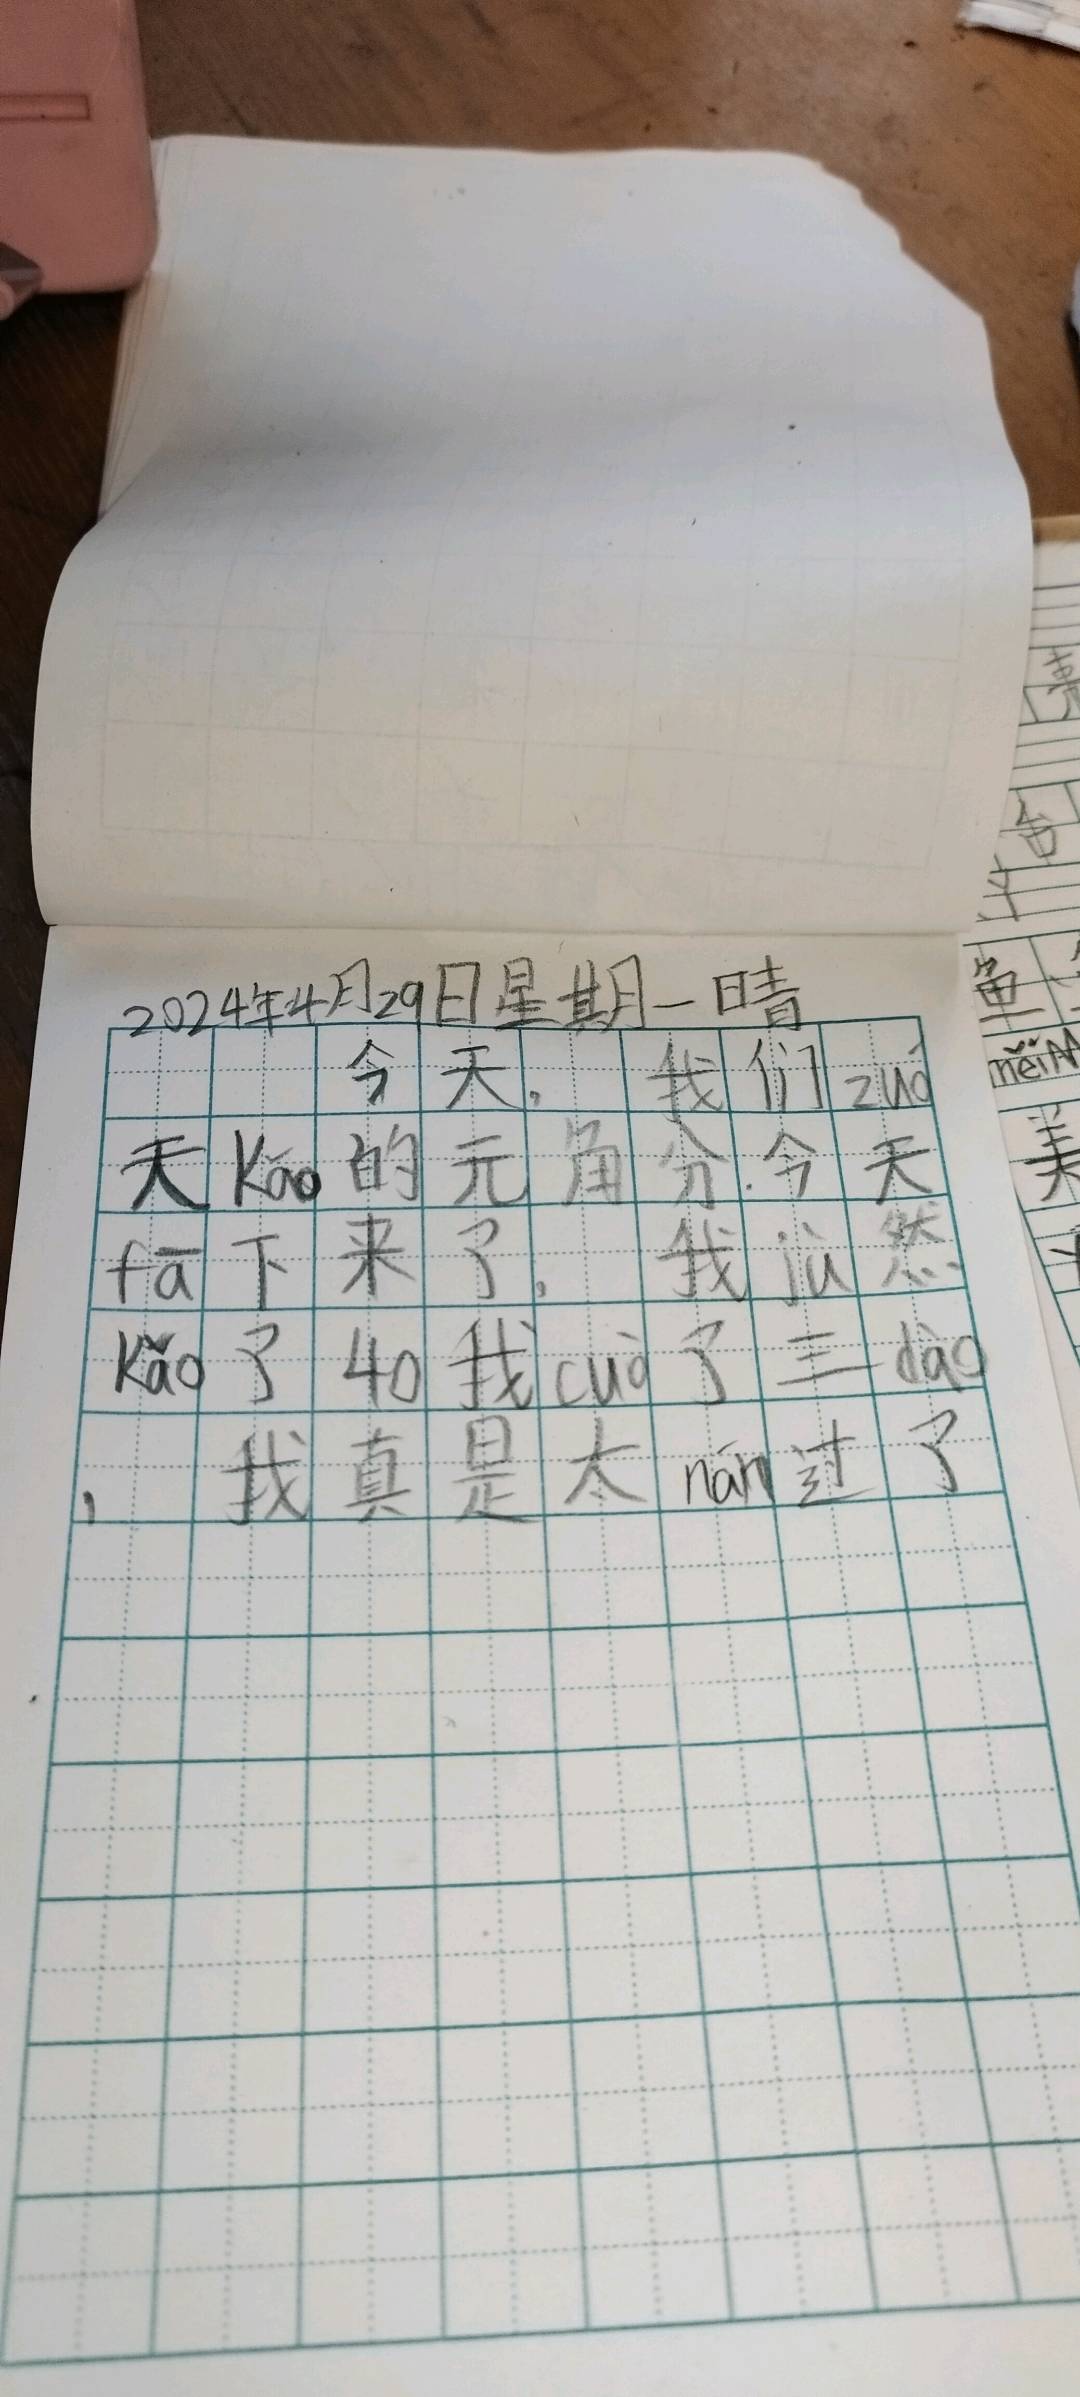 2024年4月29日星期一晴
今天，我们zuó
天kǎo的元角分.今天
fā下来了，我jū然
kǎo了40我cuò了三dào
，我真是太nán过了
鱼
měi
美